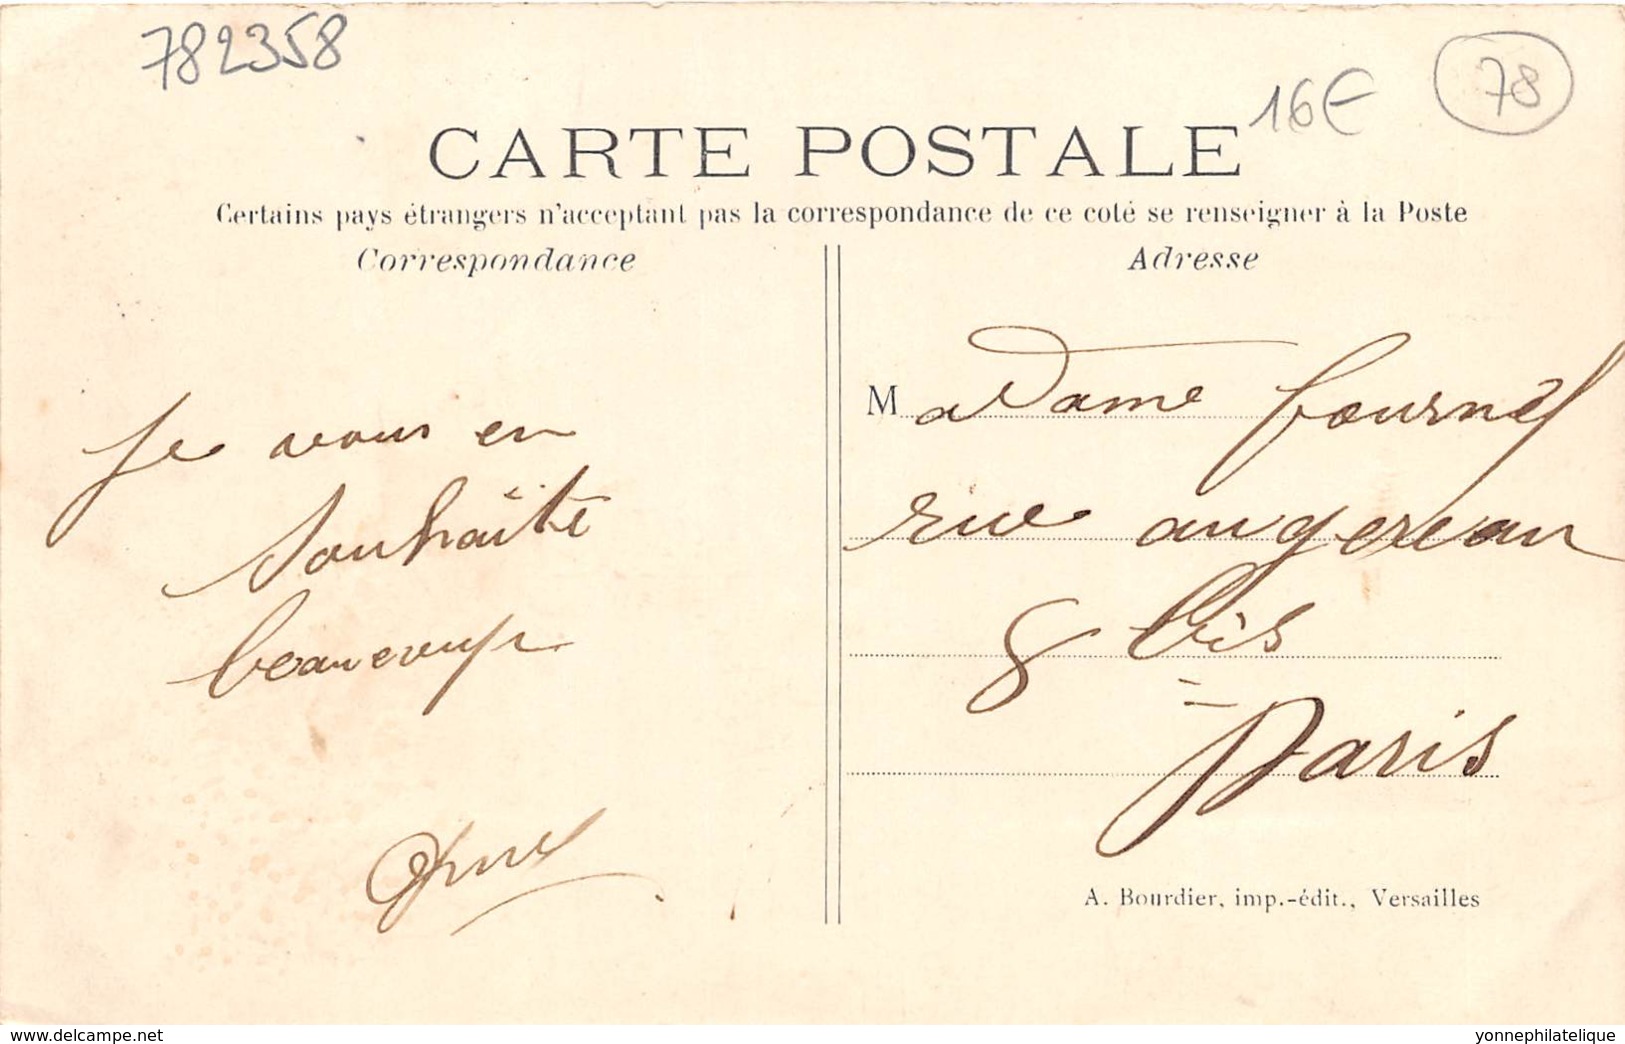 782358
16€
78
CARTE POSTALE
Certains pays étrangers n'acceptant pas la correspondance de ce coté se renseigner à la Poste
Correspondance
Je vous en
souhaite
beaucoup
Adresse
Madame fournel
rue augereau
8 bis
Paris
A. Bourdier, imp.-édit., Versailles
www.delcampe.net
yonnephilatelique